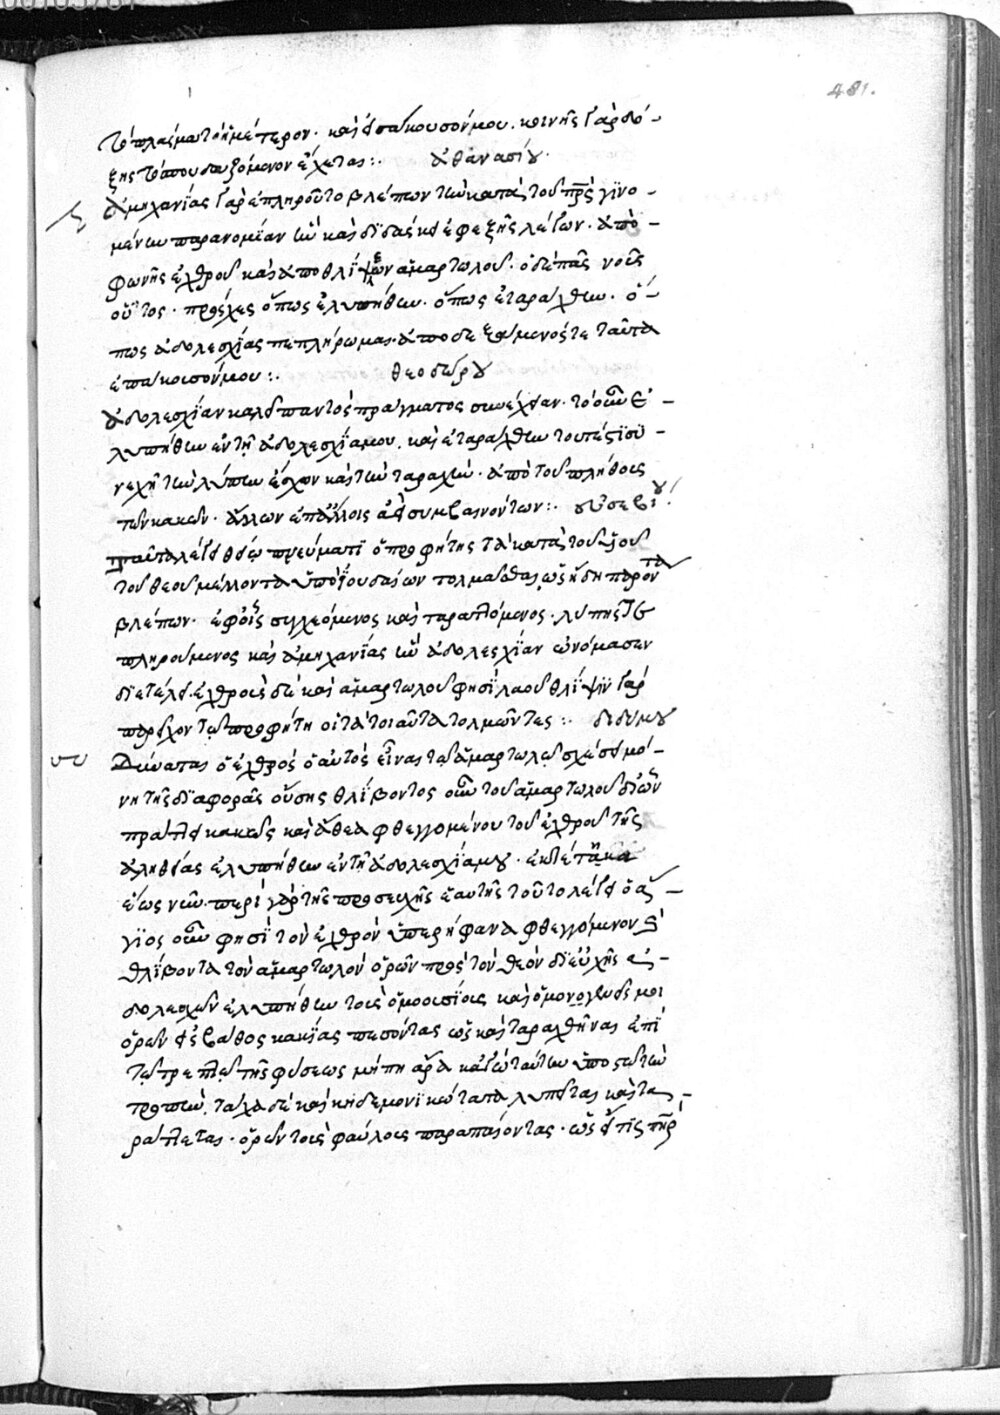 481.
τὸ πλάσμα τὸ ἡμέτερον. καὶ εἰσάκουσόν μου. κοινῆς γὰρ δό-
ξης τὸ ἀπου σωζόμενον ἔχεται:. ἀθανασίου.
ἀμηχανίας γὰρ ἐπληροῦτο βλέπων τὴν κατὰ τοῦ πρς γινο-
μένην παρανομίαν ἣν καὶ διδάσκει ἐφεξῆς λέγων. ἀπὸ
φωνῆς ἐχθροῦ καὶ ἀπὸ θλίψεως ἁμαρτωλοῦ. ὁ δὲ πᾶς νοῦς
οὗτος. πρόσχες ὅπως ἐλυπήθην. ὅπως ἐταράχθην. ὅ-
πως ἀδολεσχίας πεπλήρωμαι. ἀποδεξάμενός τε ταῦτα
ἐπάκουσόν μου:. θεοδώρου
ἀδολεσχίαν καλεῖ παντὸς πράγματος συνέχειαν. τὸ οὖν ἐ-
λυπήθην ἐν τῇ ἀδολεσχίᾳ μου. καὶ ἐταράχθην τουτέστι συ-
νεχῆ τὴν λύπην ἔσχον καὶ τὴν ταραχήν. ἀπὸ τοῦ πλήθους
τῶν κακῶν. ἄλλων ἐπ' ἄλλοις ἀεὶ συμβαινόντων:. εὐσεβίου
ταῦτα λέγει θείῳ πνεύματι ὁ προφήτης τὰ κατὰ τοῦ υἱοῦ
τοῦ θεοῦ μέλλοντα ὑπὸ ἰουδαίων τολμᾶσθαι ὡς ἤδη παρόντα
βλέπων. ἐφ' οἷς συγχεόμενος καὶ ταραττόμενος. λύπης τε
πληρούμενος καὶ ἀμηχανίας ἣν ἀδολεσχίαν ὠνόμασεν
διετέλει. ἐχθροῦ δὲ καὶ ἁμαρτωλοῦ φησὶ λαοῦ θλίψιν γὰρ
παρεῖχον τῷ προφήτῃ οἱ τὰ τοιαῦτα τολμῶντες:. διδύμου
Δύναται ὁ ἐχθρὸς ὁ αὐτὸς εἶναι τῷ ἁμαρτωλῷ σχέσει μό-
νῃ τῆς διαφορᾶς οὔσης θλίβοντος οὖν τοῦ ἁμαρτωλοῦ δι' ὧν
πράττει κακῶς καὶ ἄθεα φθεγγομένου τοῦ ἐχθροῦ τῆς
ἀληθείας ἐλυπήθην ἐν τῇ ἀδολεσχίᾳ μου.
ἕως νῦν. περὶ γὰρ τῆς προσευχῆς ἑαυτῆς τοῦτο λέγει ὁ ἅ-
γιος οὖν φησὶ τὸν ἐχθρὸν ὑπερήφανα φθεγγόμενον καὶ
θλίβοντα τὸν ἁμαρτωλὸν ὁρῶν πρὸς τὸν θεὸν δι' εὐχῆς ἀ-
δολεσχῶν ἐλυπήθην τοὺς ὁμοουσίους καὶ ὁμογενεῖς μοι
ὁρῶν εἰς βάθος κακίας πεσόντας ὡς καὶ ταραχθῆναι ἐπὶ
τῷ τρεπτῷ τῆς φύσεως μήπη ἄρα κἀγὼ ταύτην ὑποστῶ τὴν
τροπήν. τάχα δὲ καὶ κηδεμονικώτατα λυπεῖται καὶ τα-
ράττεται. ὁρῶν τοὺς φαύλους παραπαίοντας. ὡς εἴ τις πηρ